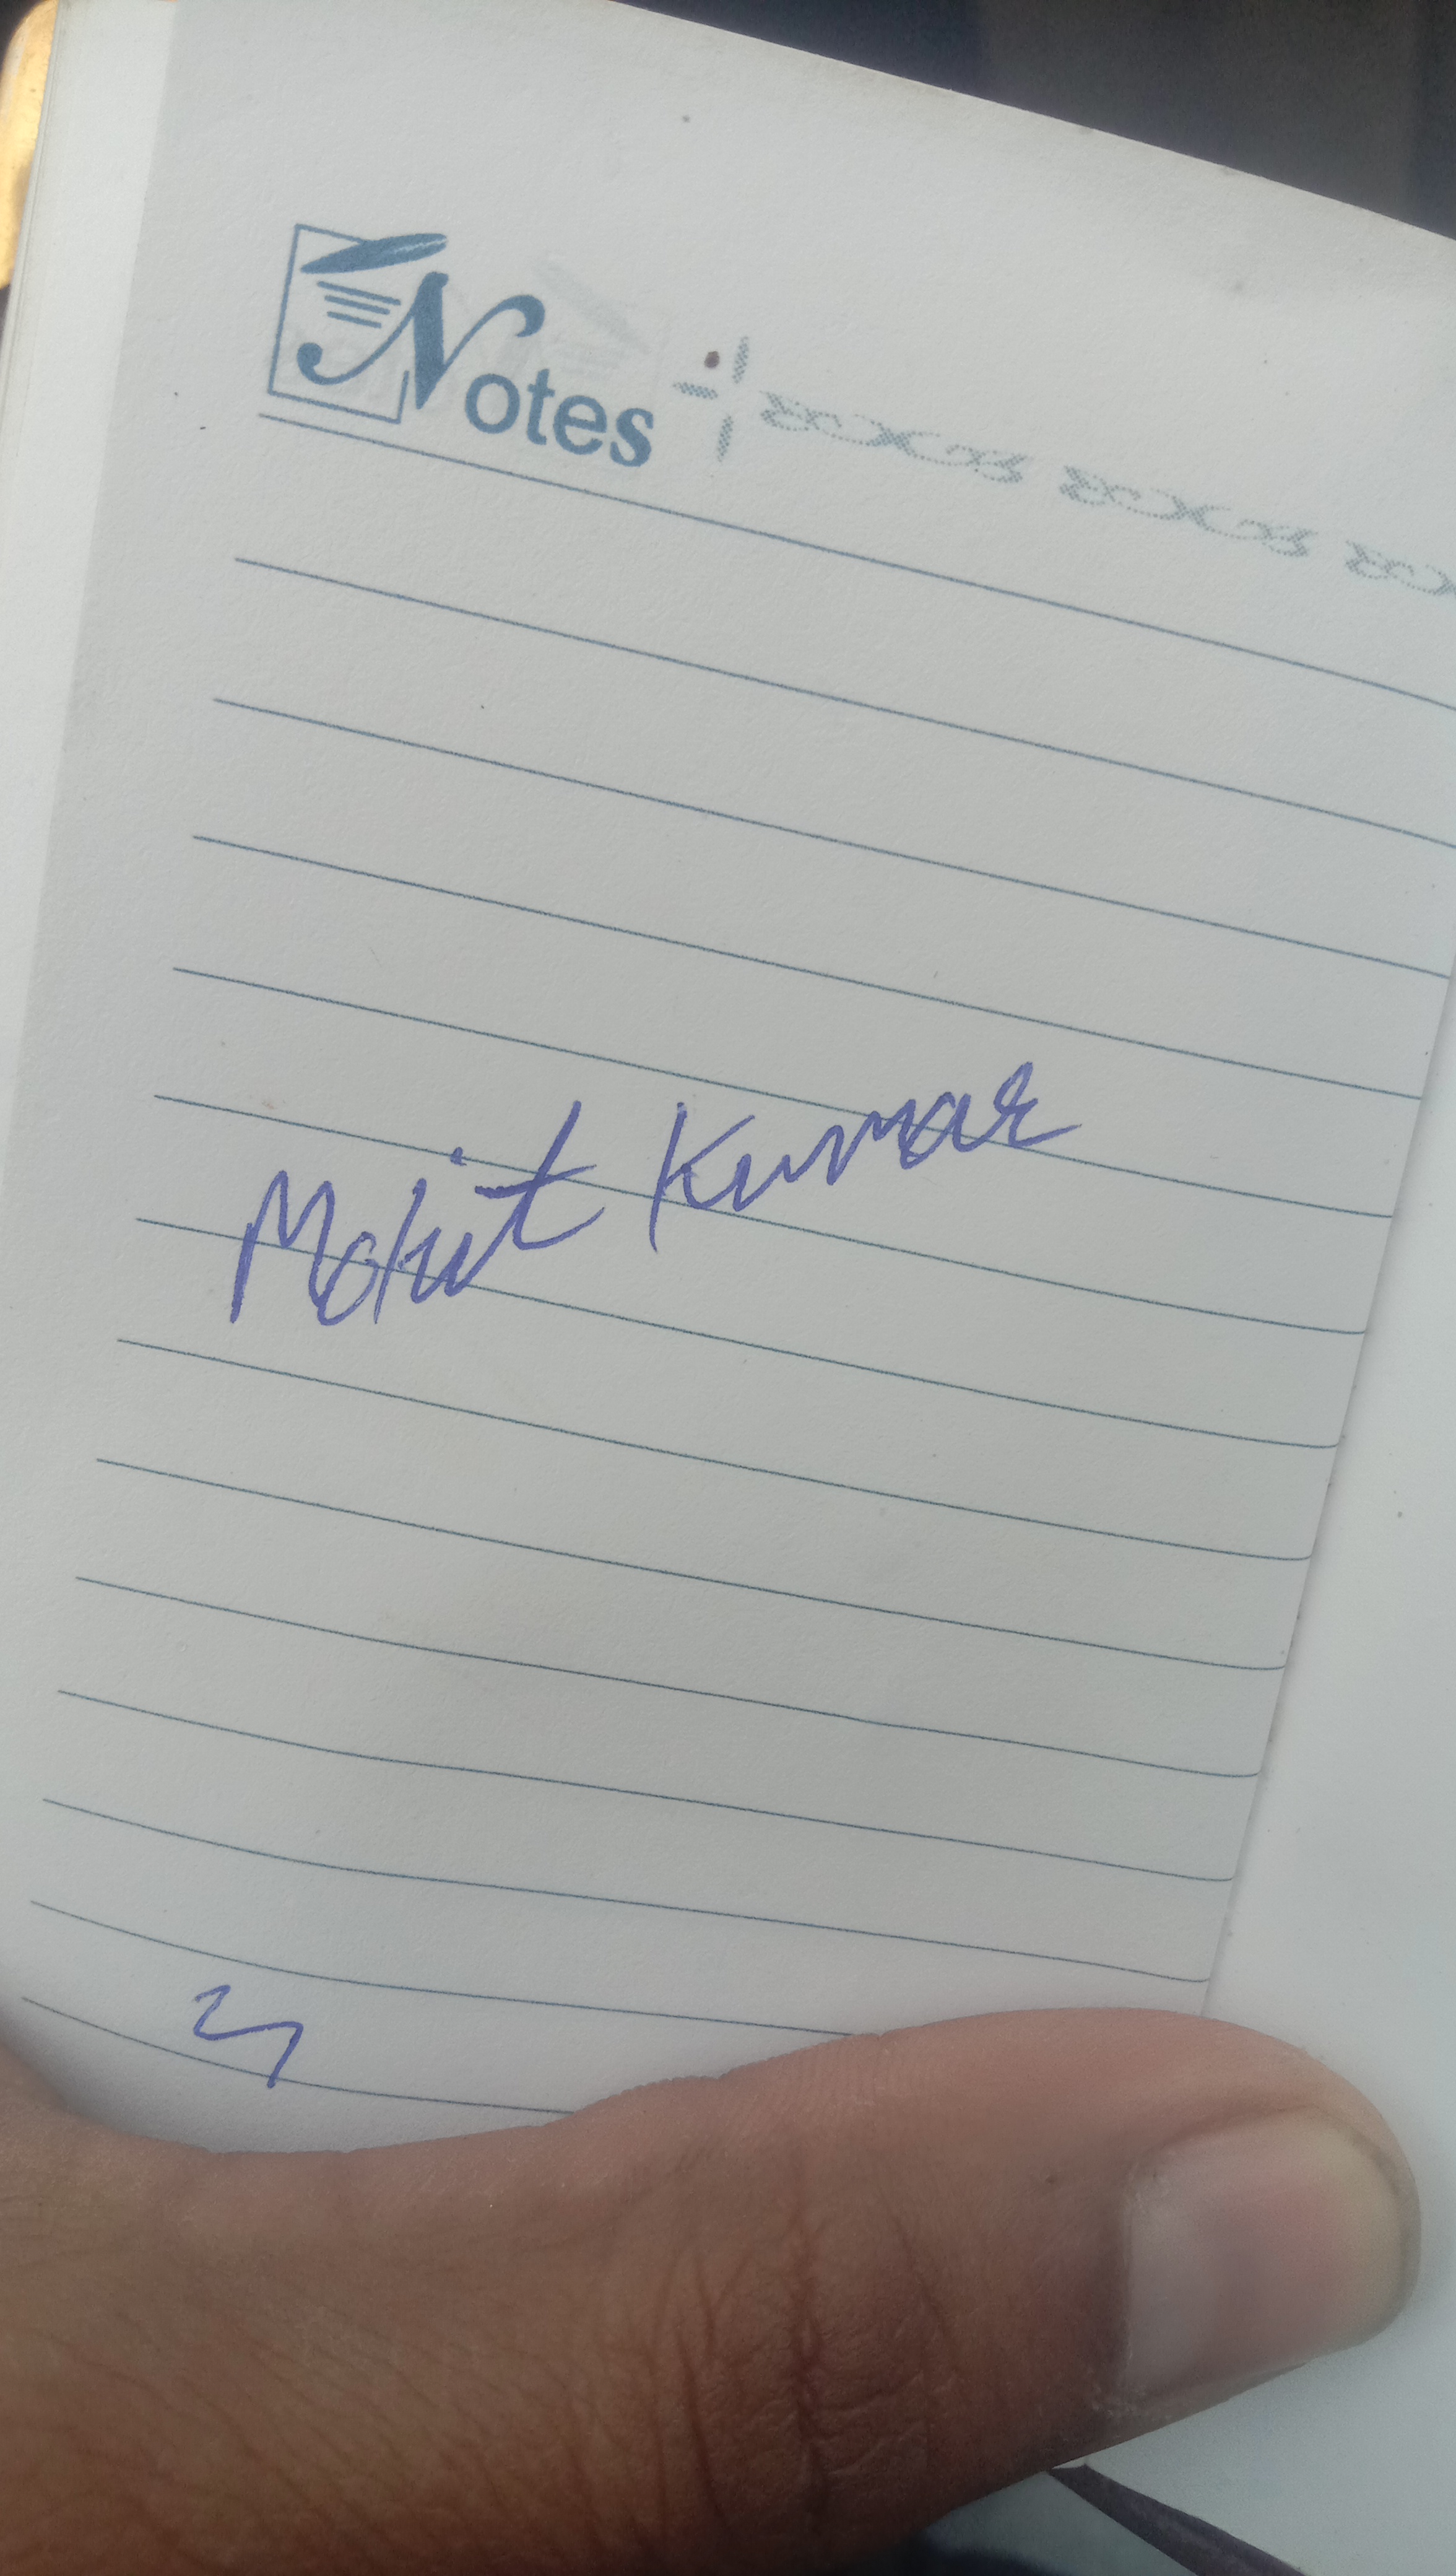 Notes
Mohit Kumar